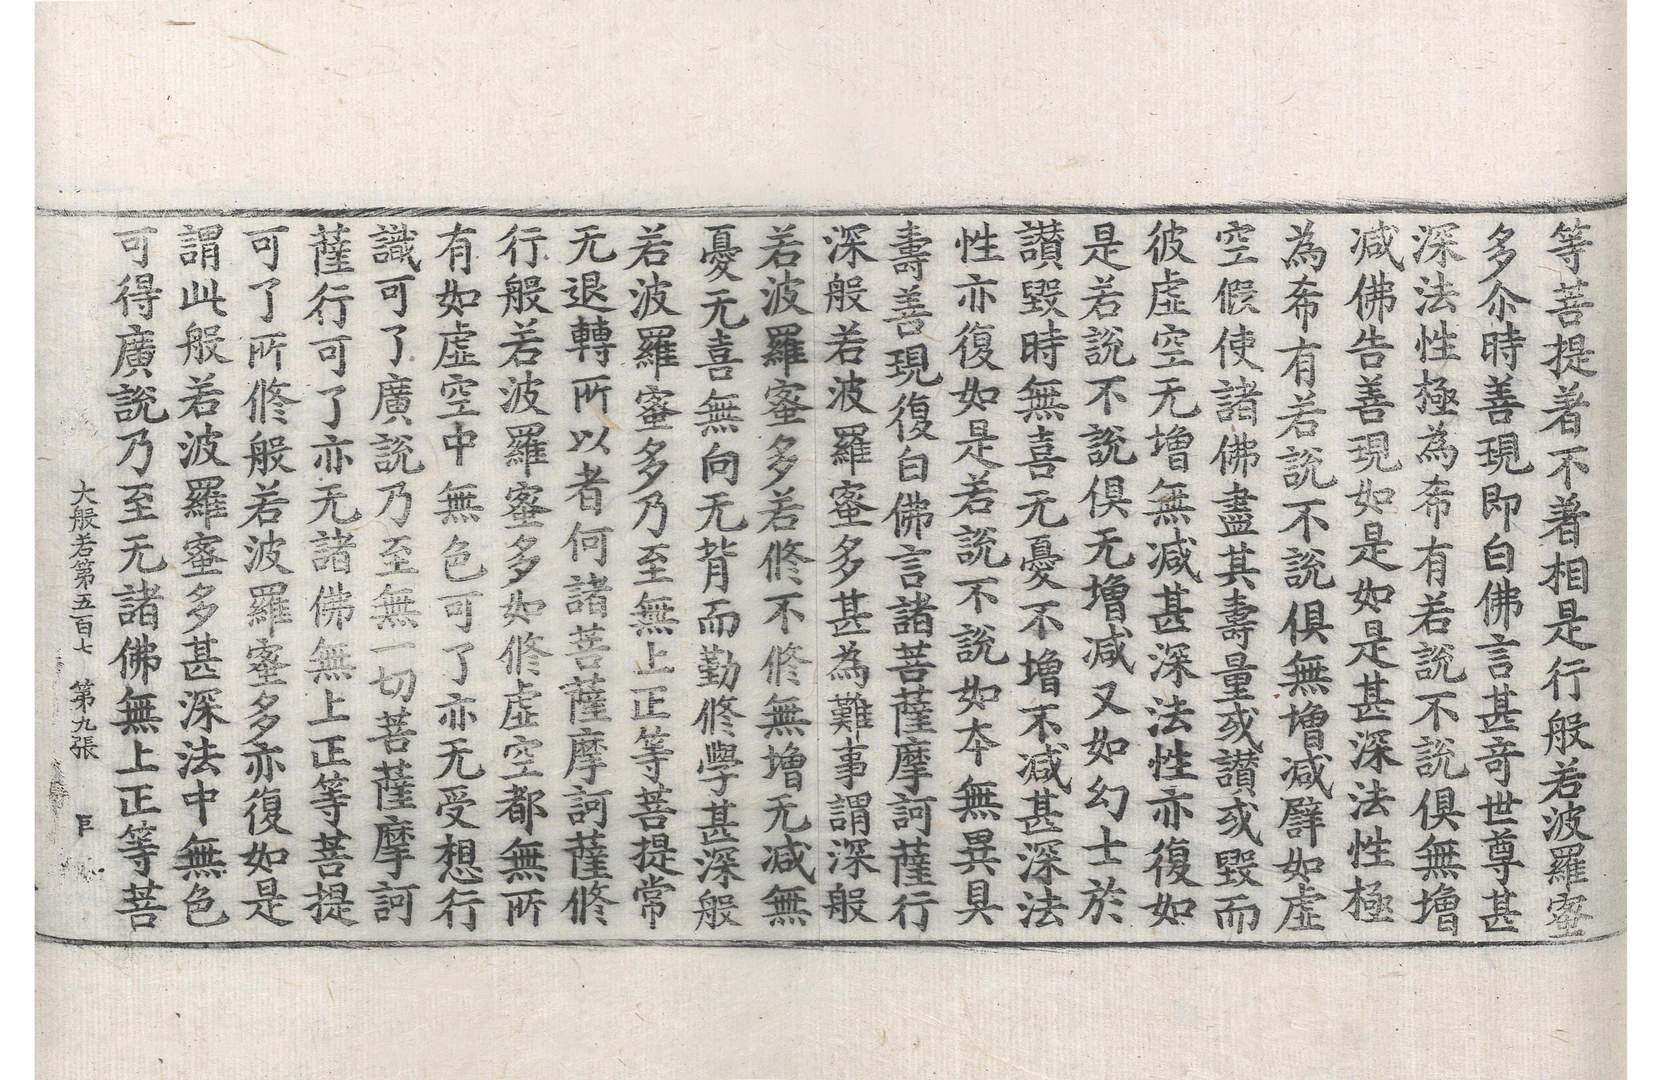 等菩提著不著相是行般若波羅蜜
多尒時善現即白佛言甚奇世尊甚
深法性極為希有若說不說俱無增
減佛告善現如是如是甚深法性極
為希有若說不說俱無增減譬如虛
空假使諸佛盡其壽量或讃或毀而
彼虛空无增無減甚深法性亦復如
是若說不說俱无增減又如幻士於
讃毀時無喜无憂不增不減甚深法
性亦復如是若說不說如本無異具
壽善現復白佛言諸菩薩摩訶薩行
深般若波羅蜜多甚為難事謂深般
若波羅蜜多若修不修無增无減無
憂无喜無向无背而勤修學甚深般
若波羅蜜多乃至無上正等菩提常
无退轉所以者何諸菩薩摩訶薩修
行般若波羅蜜多如修虛空都無所
有如虛空中無色可了亦无受想行
識可了廣說乃至無一切菩薩摩訶
薩行可了亦无諸佛無上正等菩提
可了所修般若波羅蜜多亦復如是
謂此般若波羅蜜多甚深法中無色
可得廣說乃至无諸佛無上正等菩
大般若第五百七 第九張